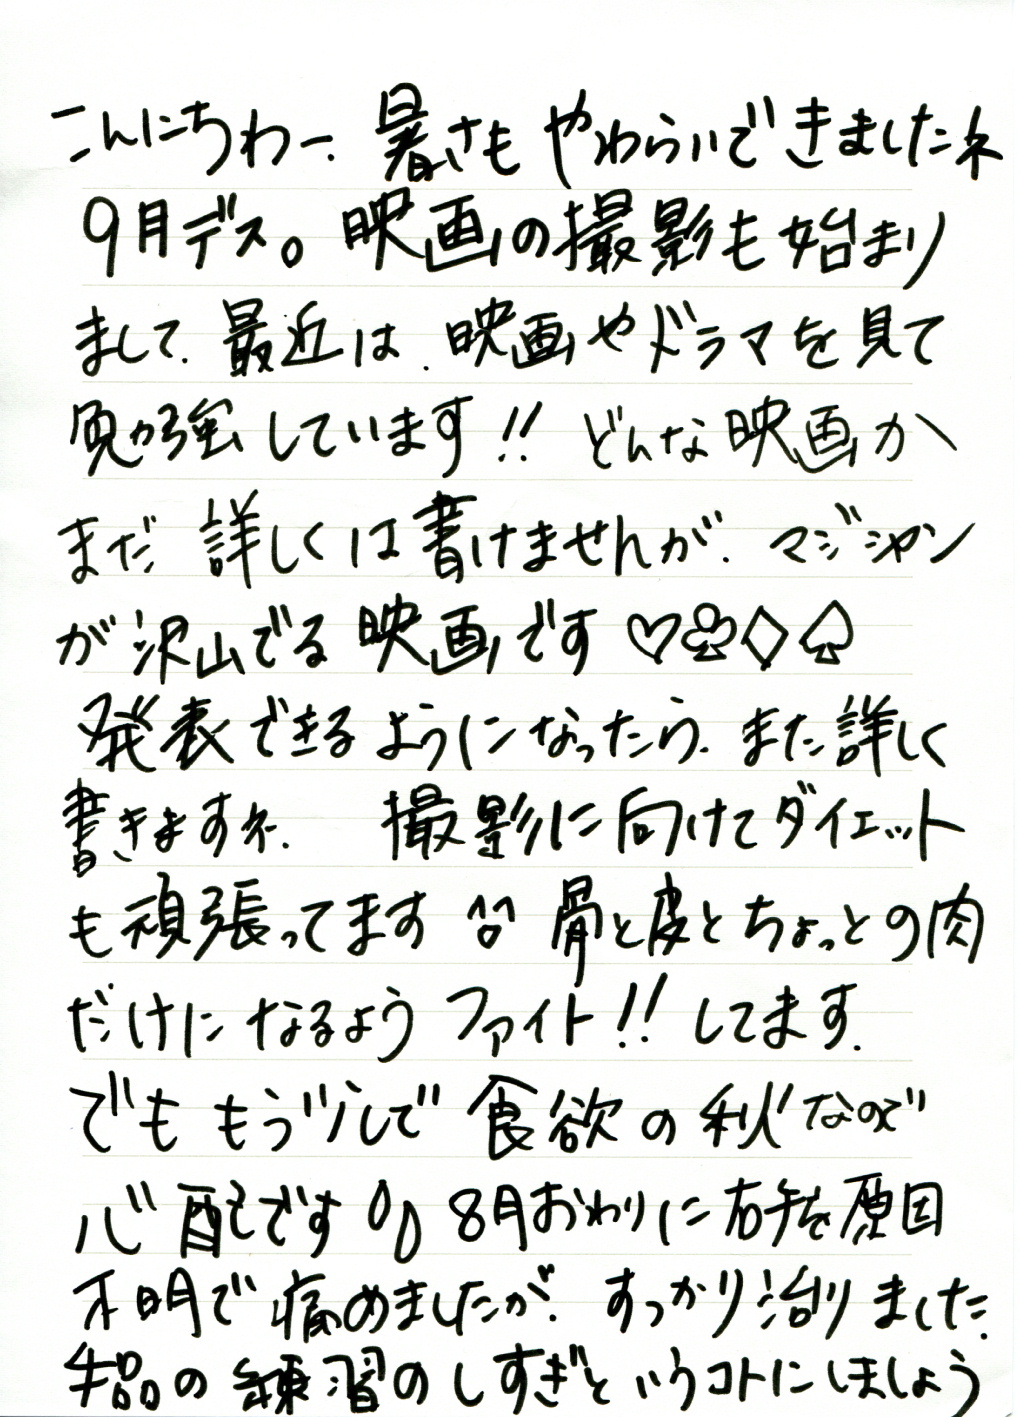 こんにちわー、暑さもやわらいできましたネ
9月デス。映画の撮影も始まり
まして、最近は、映画やドラマを見て
勉強しています!! どんな映画か
まだ 詳しくは書けませんが、マジシャン
が沢山でる映画です♡♧♢♤
発表できるようになったら、また詳しく
書きますネ、 撮影に向けてダイエット
も頑張ってます ^^ 骨と皮とちょっとの肉
だけになるよう ファイト!! してます、
でも もう少しで 食欲の秋なので
心配です 8月おわりに右手を原因
不明で痛めましたが、すっかり治りました、
手品の練習のしすぎというコトにしましょう